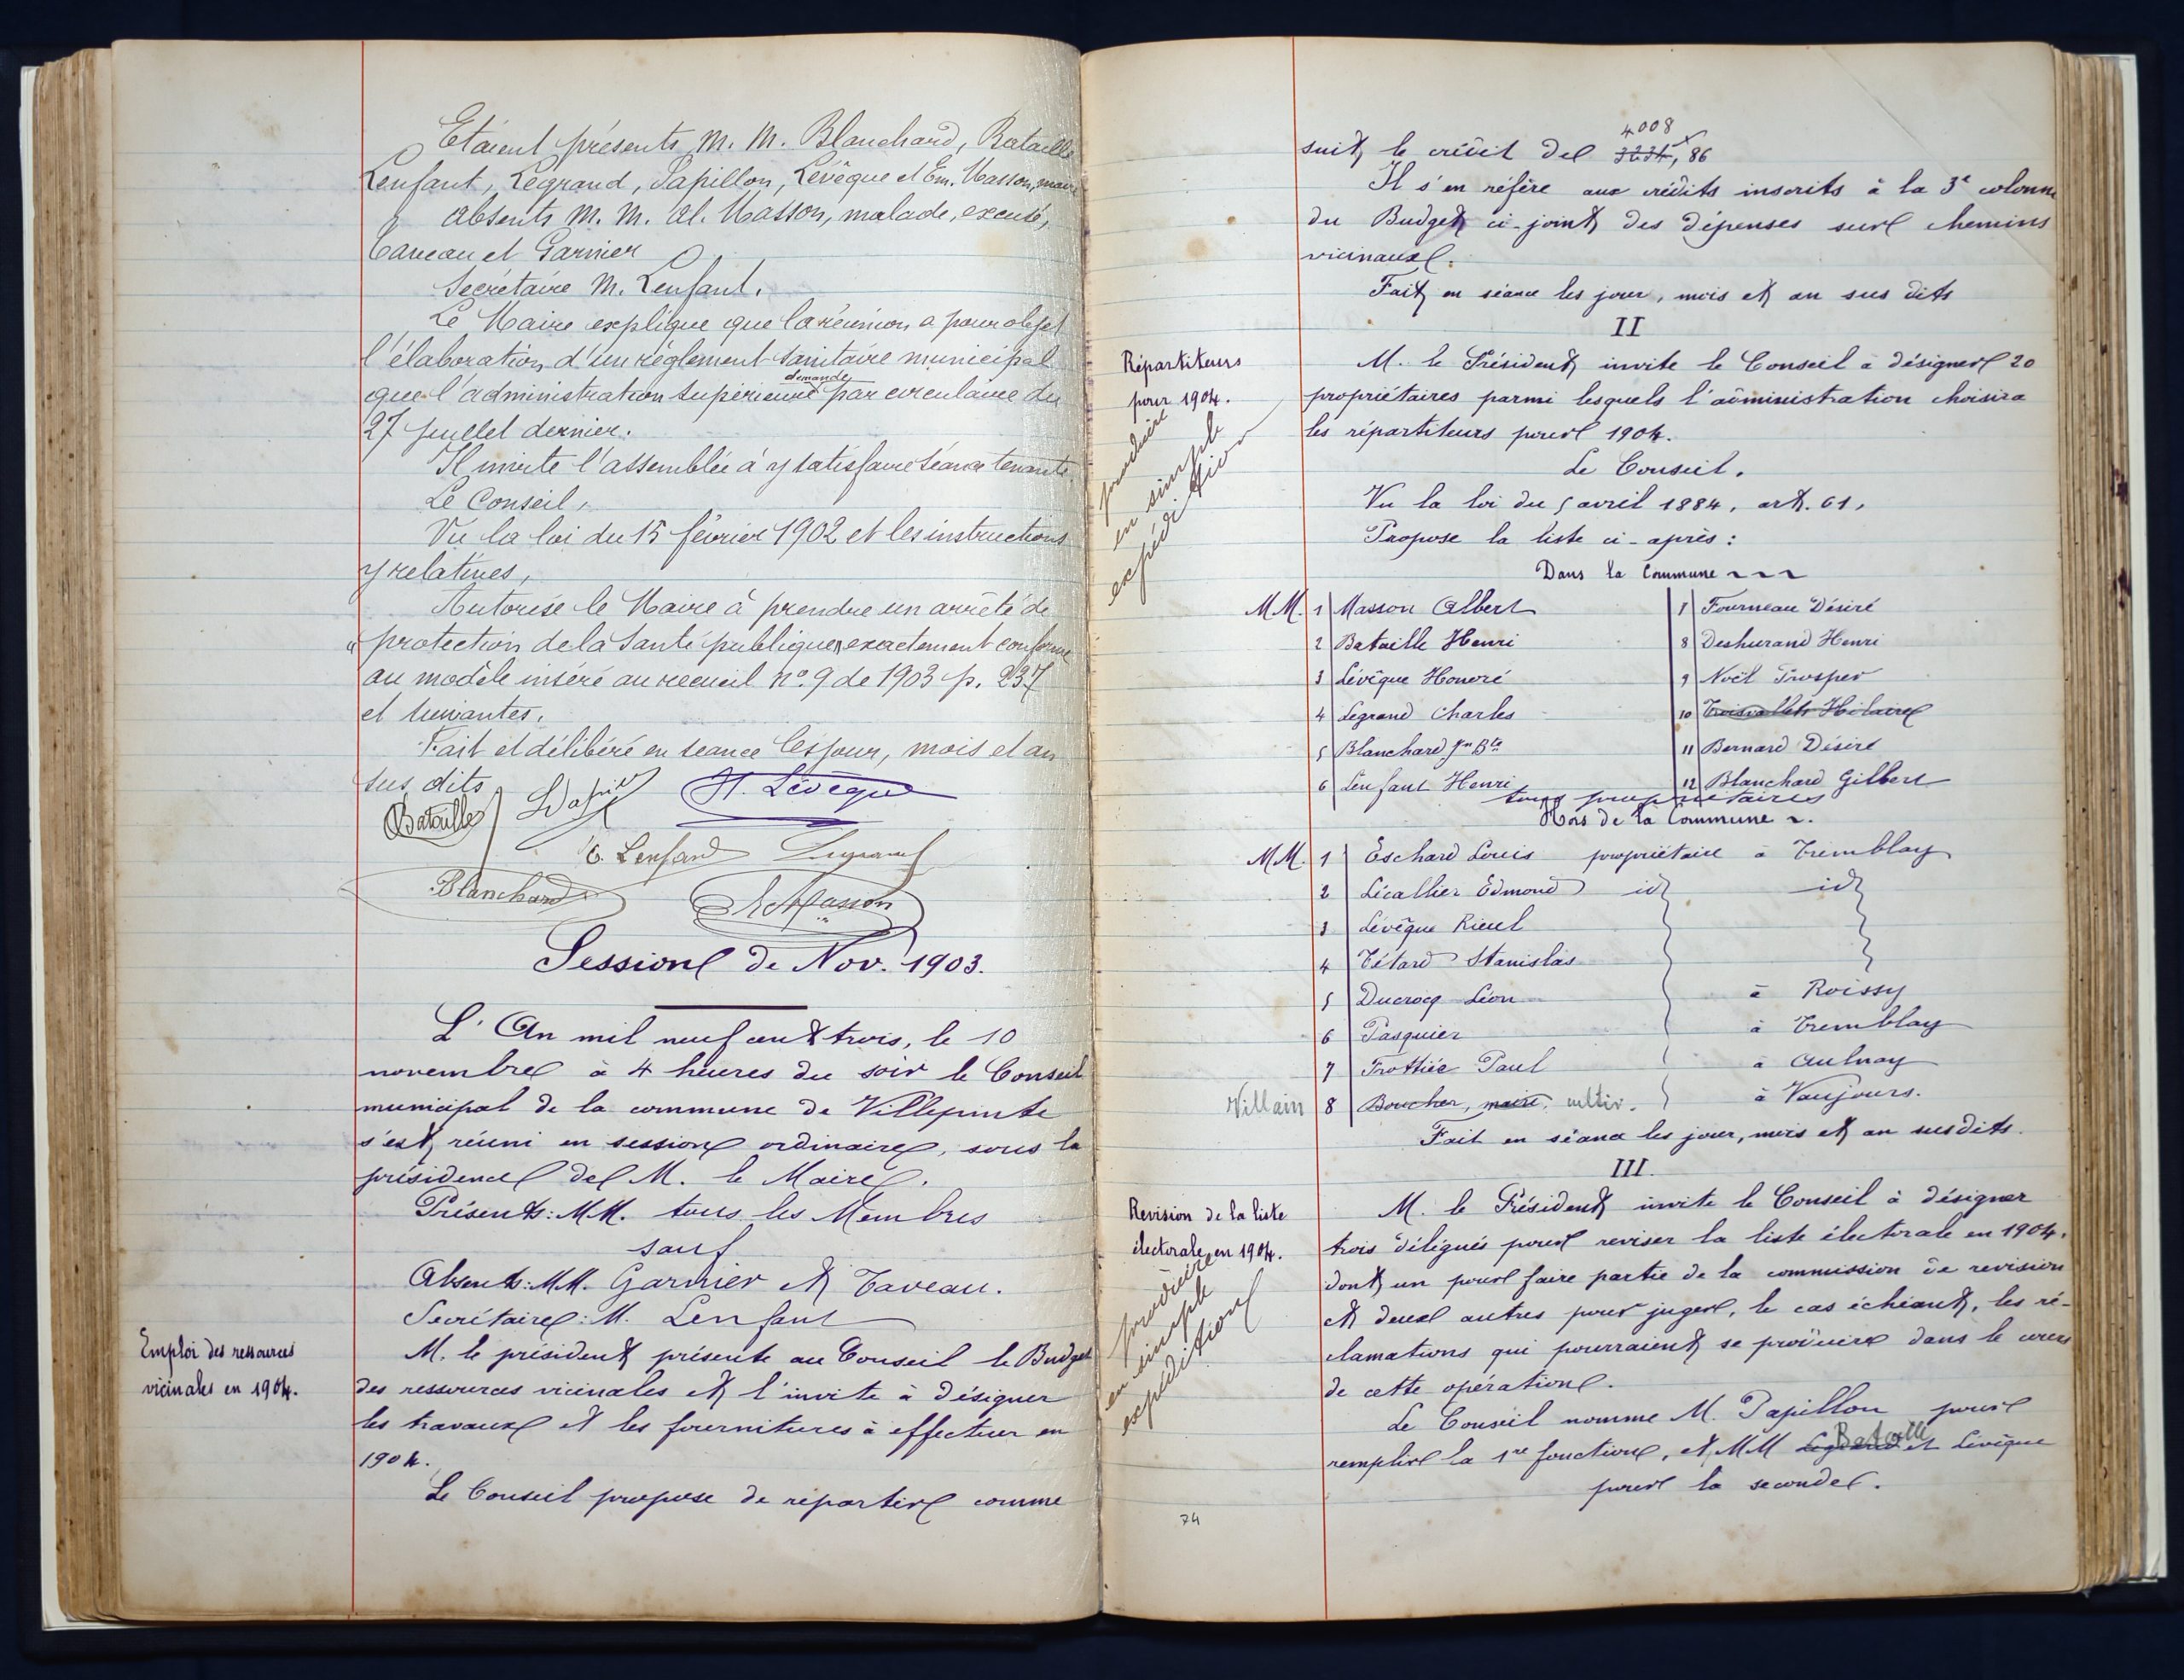 Etaient présents M. M. Blanchard, Bataille
Lenfant, Legrand, Papillon, Lévêque et Em. Masson, maire
Absents M. M. Al. Masson, malade, excusé,
Taveau et Garnier
Secrétaire M. Lenfant.
Le Maire explique que la réunion a pour objet
l'élaboration d'un réglement sanitaire municipal
que l'administration supérieure demande par circulaire du
27 juillet dernier.
Il invite l'assemblée à y satisfaire séance tenante.
Le Conseil,
Vu la loi du 15 février 1902 et les instructions
y relatives,
Autorise le Maire à prendre un arrêté de
"protection de la santé publique" exactement conforme
au modèle inséré au recueil no. 9 de 1903 p. 237
et suivantes.
Fait et délibéré en séance les jour, mois et an
sus dits
Bataille
H. Lévêque
E. Lenfant Legrand
Blanchard
Masson
Session de Nov. 1903.
L'An mil neuf cent trois, le 10
novembre à 4 heures du soir le Conseil
municipal de la commune de Villepinte
s'est réuni en session ordinaire, sous la
présidence de M. le Maire.
Présents: MM. tous les Membres
sauf
Absents: MM. Garnier et Taveau.
Secrétaire: M. Lenfant
Emploi des ressources
vicinales en 1904.
M. le président présente au Conseil le Budget
des ressources vicinales et l'invite à désigner
les travaux et les fournitures à effectuer en
1904.
Le Conseil propose de répartir comme
4008
suit, le crédit de 3634, 86
Il s'en réfère aux crédits inscrits à la 3e colonne
du Budget ci-joint des dépenses sur chemins
vicinaux.
Fait en séance les jour, mois et an sus dits
II
Répartiteurs
pour 1904.
produire
en simple
expédition
M. le Président invite le Conseil à désigner 20
propriétaires parmi lesquels l'administration choisira
les répartiteurs pour 1904.
Le Conseil,
Vu la loi du 5 avril 1884, art. 61,
Propose la liste ci-après:
Dans la Commune
MM. 1 Masson Albert 7 Fourneau Désiré
2 Bataille Henri 8 Deshurand Henri
3 Lévêque Honoré 9 Noël Prosper
4 Legrand Charles 10 Troisvallets Hilaire
5 Blanchard Jn Bte 11 Bernard Désiré
6 Lenfant Henri 12 Blanchard Gilbert
tous propriétaires
Hors de la Commune
MM. 1 Eschard Louis propriétaire à Tremblay
2 Lécallier Edmond id id
3 Lévêque Rieul
4 Tétard Stanislas
5 Ducrocq Léon à Roissy
6 Pasquier à Tremblay
7 Trottier Paul à Aulnay
Villain 8 Boucher, maire, cultiv. à Vaujours.
Fait en séance les jour, mois et an susdits.
III.
Revision de la liste
électorale en 1904.
produire
en simple
expédition
M. le Président invite le Conseil à désigner
trois délégués pour reviser la liste électorale en 1904,
dont un pour faire partie de la commission de revision
et deux autres pour juger, le cas échéant, les ré-
clamations qui pourraient se produire dans le cours
de cette opération.
Le Conseil nomme M. Papillon pour
remplir la 1re fonction, et MM Legrand Bataille et Lévêque
pour la seconde.
74